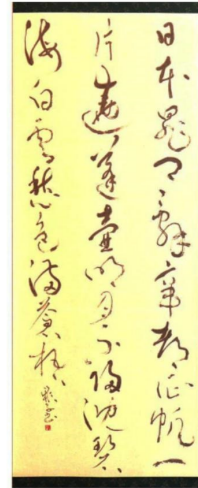 日本晁卿辭帝都征帆一
片遶蓬壺明月不歸沉碧
海白雲愁色滿蒼梧